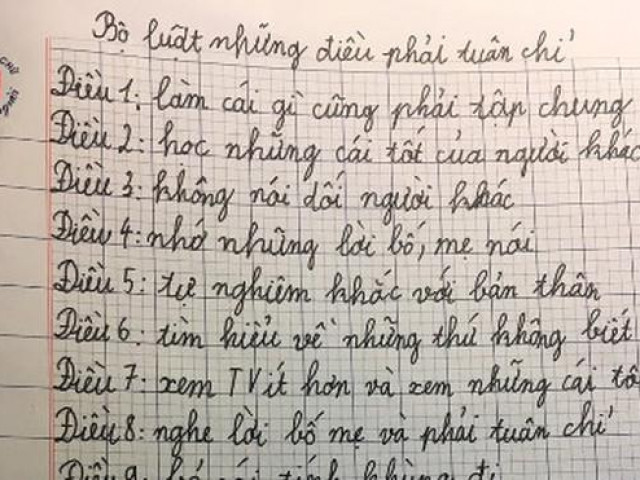 Bộ luật những điều phải tuân chỉ
Điều 1: làm cái gì cũng phải tập chung
Điều 2: học những cái tốt của người khác
Điều 3: không nói dối người khác
Điều 4: nhớ những lời bố, mẹ nói
Điều 5: tự nghiêm khắc với bản thân
Điều 6: tìm hiểu về những thứ không biết
Điều 7: xem TV ít hơn và xem những cái tố
Điều 8: nghe lời bố mẹ và phải tuân chỉ
Điều 9: